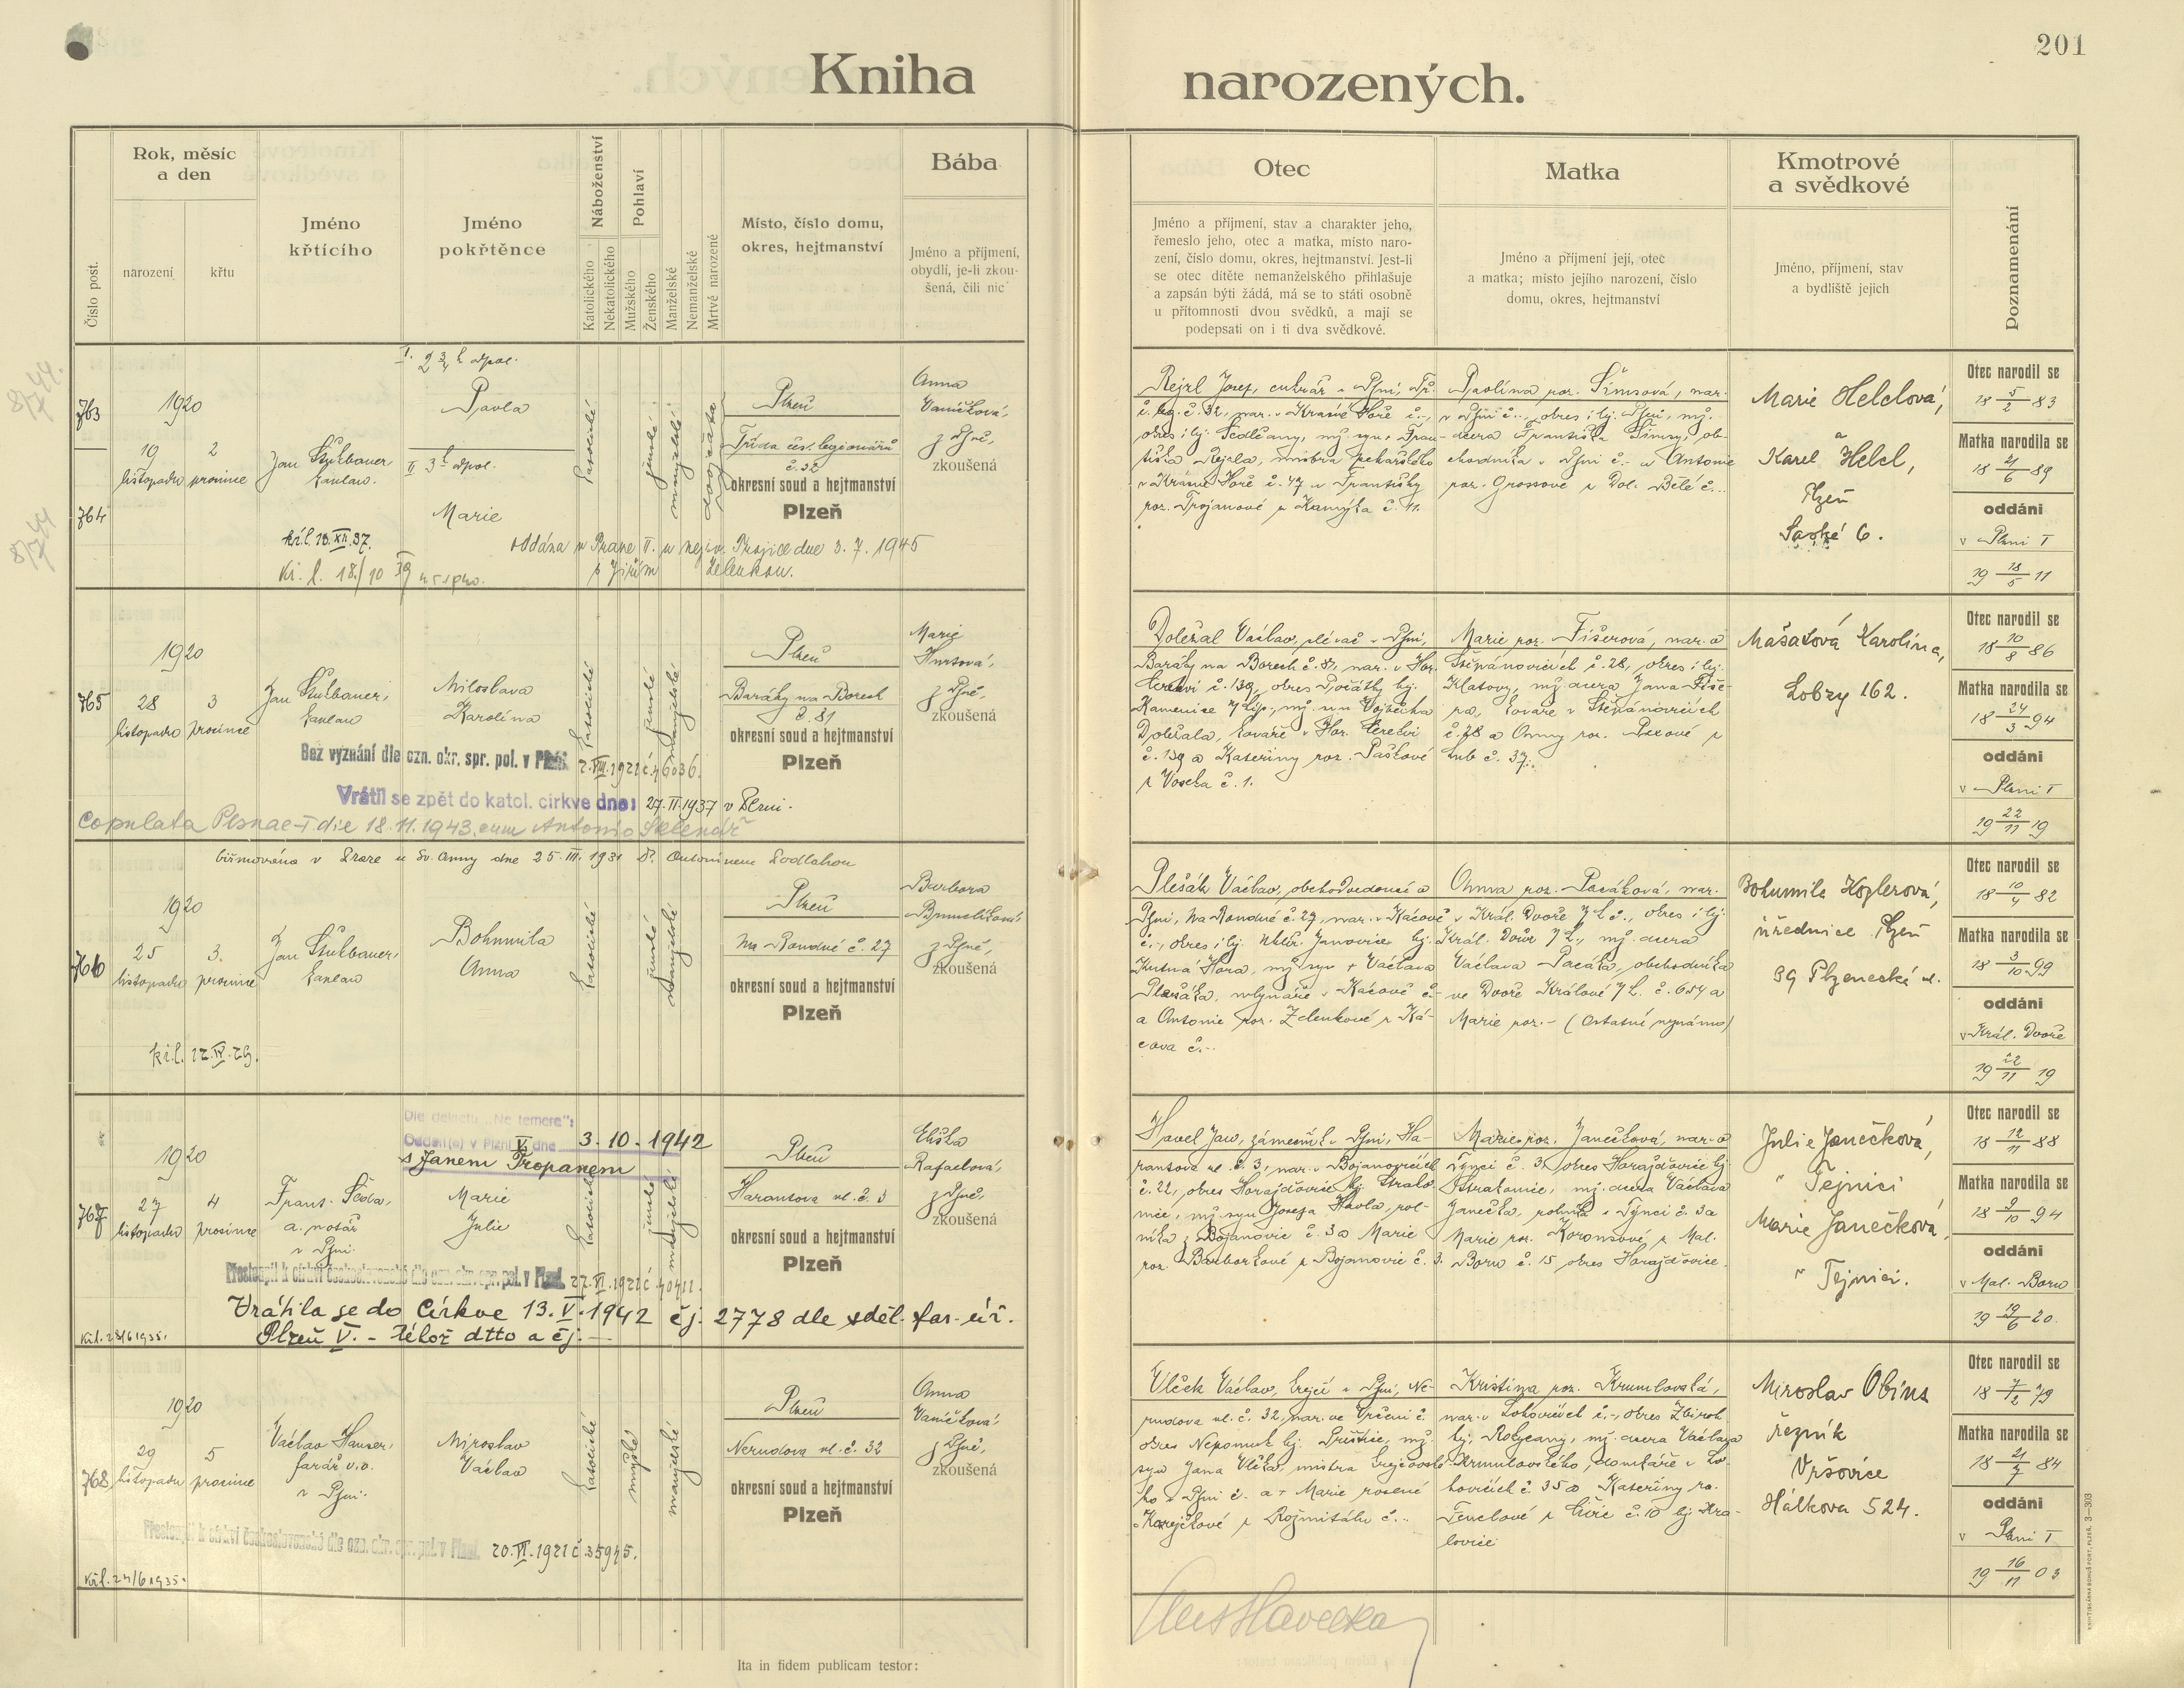 201
Kniha narozených.
Číslo post.
Rok, měsíc
a den
narození
křtu
Jméno
křtícího
Jméno
pokřtěnce
Náboženství
Katolického
Nekatolického
Pohlaví
Mužského
Ženského
Manželské
Nemanželské
Mrtvě narozené
Místo, číslo domu,
okres, hejtmanství
Bába
Jméno a příjmení,
obydlí, je-li zkou-
šená, čili nic
Otec
Jméno a příjmení, stav a charakter jeho,
řemeslo jeho, otec a matka, místo naro-
zení, číslo domu, okres, hejtmanství. Jest-li
se otec dítěte nemanželského přihlašuje
a zapsán býti žádá, má se to státi osobně
u přítomnosti dvou svědků, a mají se
podepsati on i ti dva svědkové.
Matka
Jméno a příjmení její, otec
a matka; místo jejího narození, číslo
domu, okres, hejtmanství
Kmotrové
a svědkové
Jméno, příjmení, stav
a bydliště jejich
Poznamenání
763
764
1920
19
listopadu
2
prosince
Jan Štulbauer
kaplan.
Pavla
Marie
katolické
ženské
manželské
dvojčata
Plzeň
Třída čsl. legionářů
č. 32
okresní soud a hejtmanství
Plzeň
Anna
Vaníčková,
z Plzně,
zkoušená
kř.l. 13.XII.37.
Kř. l. 18./10 39
oddána v Praze II. u nejsv. Trojice dne 3. 7. 1945
s Jiřím Zelenkou.
Rejzl Josef, cukrář v Plzni, Tř.
č. leg. č. 32, nar. v Krásné Hoře č.-,
okres i hj. Sedlčany, mž. syn Fran-
tiška Rejzla, mistra pekařského
v Krásné Hoře č. 47 a Františky
roz. Trojanové z Kamýka č. 11.
Pavlína roz. Šimsová, nar.
v Plzni č.-, okres i hj. Plzeň, mž.
dcera Františka Šimsy, ob-
chodníka v Plzni č.- a Antonie
roz. Grossové z Dol. Bělé č...
Marie Helclová,
a
Karel Helcl,
Plzeň
Saské 6.
Otec narodil se
18 5/2 83
Matka narodila se
18 21/6 89
oddáni
v Plzni I
19 18/5 11
765
1920
28
listopadu
3
prosince
Jan Štulbauer,
kaplan
Miloslava
Karolína
katolické
ženské
manželské
Plzeň
Baráky na Borech
č. 81
okresní soud a hejtmanství
Plzeň
Marie
Hurtová,
z Plzně,
zkoušená
Bez vyznání dle ozn. okr. spr. pol. v Plzni 2.VIII.1921 č. 46036.
Vrátil se zpět do katol. církve dne: 27.II.1937 v Plzni.
Copulata Plsnae-I die 18.11.1943. cum Antonio Sklenář
Doležal Václav, plévač v Plzni,
Baráky na Borech č. 81, nar. v Hor.
Cerekvi č. 139, okres Počátky hj.
Kamenice n/Lip., mž. syn Vojtěcha
Doležala, kováře v Hor. Cerekvi
č. 139 a Kateřiny roz. Paškové
z Vosecka č. 1.
Marie roz. Fišerová, nar. v
Štěpánovicích č. 28, okres i hj.
Klatovy, mž. dcera Jana Fiše-
ra, kováře v Štěpánovicích
č. 28 a Anny roz. Pexové z
Lub č. 37.
Mašatová Karolína,
Lobzy 162.
Otec narodil se
18 10/8 86
Matka narodila se
18 24/3 94
oddáni
v Plzni I
19 22/11 19
biřmována v Praze u sv. Anny dne 25.III.1931 P. Antonínem Podlahou
766
1920
25
listopadu
3.
prosince
Jan Štulbauer,
kaplan
Bohumila
Anna
katolické
ženské
manželské
Plzeň
Na Roudné č. 27
okresní soud a hejtmanství
Plzeň
Barbora
z Plzně,
zkoušená
kř.l. 12.IV.29.
Plešák Václav, obchodvedoucí v
Plzni, Na Roudné č. 27, nar. v Kácově
č.-, okres i hj. Uhlíř. Janovice hj.
Kutná Hora, mž. syn + Václava
Plešáka, mlynáře v Kácově č.-
a Antonie roz. Zelenkové z Ká-
cova č...
Anna roz. Pacáková, nar.
v Král. Dvoře n/L. č., okres i hj.
Král. Dvůr n/L., mž. dcera
Václava Pacáka, obchodníka
ve Dvoře Králové n/L. č. 654 a
Marie roz. - (Ostatní neznámo)
Bohumila Koglerová,
úřednice Plzeň
39 Plzenecká ul.
Otec narodil se
18 10/4 82
Matka narodila se
18 3/10 99
oddáni
v Král. Dvoře
19 22/11 19
Dle dekretu „Ne temere":
Oddán(a) v Plzni V. dne 3. 10. 1942
s Janem Tropanem
767
1920
27
listopadu
4
prosince
Frant. Škoda,
a. notář
v Plzni
Marie
Julie
katolické
ženské
manželské
Plzeň
Harantova ul. č. 3
okresní soud a hejtmanství
Plzeň
Eliška
Rafaelová,
z Plzně,
zkoušená
Přestoupil k církvi československé dle ozn. okr. spr. pol. v Plzni 27.VI.1921 č. 40411.
Vrátila se do Církve 13.V.1942 čj. 2778 dle sděl. far. úř.
Plzeň V. - téhož dtto a čj. -
Kř.l. 28/6 1935.
Havel Jan, zámečník v Plzni, Ha-
rantova ul. č. 3, nar. v Bojanovicích
č. 22, okres Horažďovice hj. Strako-
nice, mž. syn Josefa Havla, rol-
níka z Bojanovic č. 3 a Marie
roz. Barborkové z Bojanovic č. 3.
Marie roz. Janečková, nar. v
Týnci č. 3, okres Horažďovice hj.
Strakonice, mž. dcera Václava
Janečka, rolníka v Týnci č. 3 a
Marie roz. Koronsové z Mal.
Boru č. 15 okres Horažďovice.
Julie Janečková,
v Tejnici
Marie Janečková,
v Tejnici.
Otec narodil se
18 12/11 88
Matka narodila se
18 9/10 94
oddáni
v Mal. Boru
19 19/6 20.
768
1920
29
listopadu
5
prosince
Václav Hauser,
farář v.v.
v Plzni
Miroslav
Václav
katolické
mužské
manželské
Plzeň
Nerudova ul. č. 32
okresní soud a hejtmanství
Plzeň
Anna
Vaníčková,
z Plzně,
zkoušená
Přestoupil k církvi československé dle ozn. okr. spr. pol. v Plzni. 20.VI.1921 č. 35945.
Kř.l. 24/6 1935.
Vlček Václav, krejčí v Plzni, Ne-
rudova ul. č. 32, nar. ve Vrčeni č.
okres Nepomuk hj. Přeštice, mž.
syn Jana Vlčka, mistra krejčovské-
ho v Plzni č.- a + Marie rozené
Korejčkové z Rožmitálu č...
Kristina roz. Krumlovská,
nar. v Lohovicích č.-, okres Zbiroh
hj. Rokycany, mž. dcera Václava
Krumlovského, domkáře v Lo-
hovicích č. 35 a Kateřiny ro.
Fenclové z Liše č. 10 hj. Kra-
lovice
Miroslav Obins
řezník
Vršovice
Hálkova 524.
Otec narodil se
18 7/2 79
Matka narodila se
18 21/7 84
oddáni
v Plzni I
19 16/11 03
Ita in fidem publicam testor: